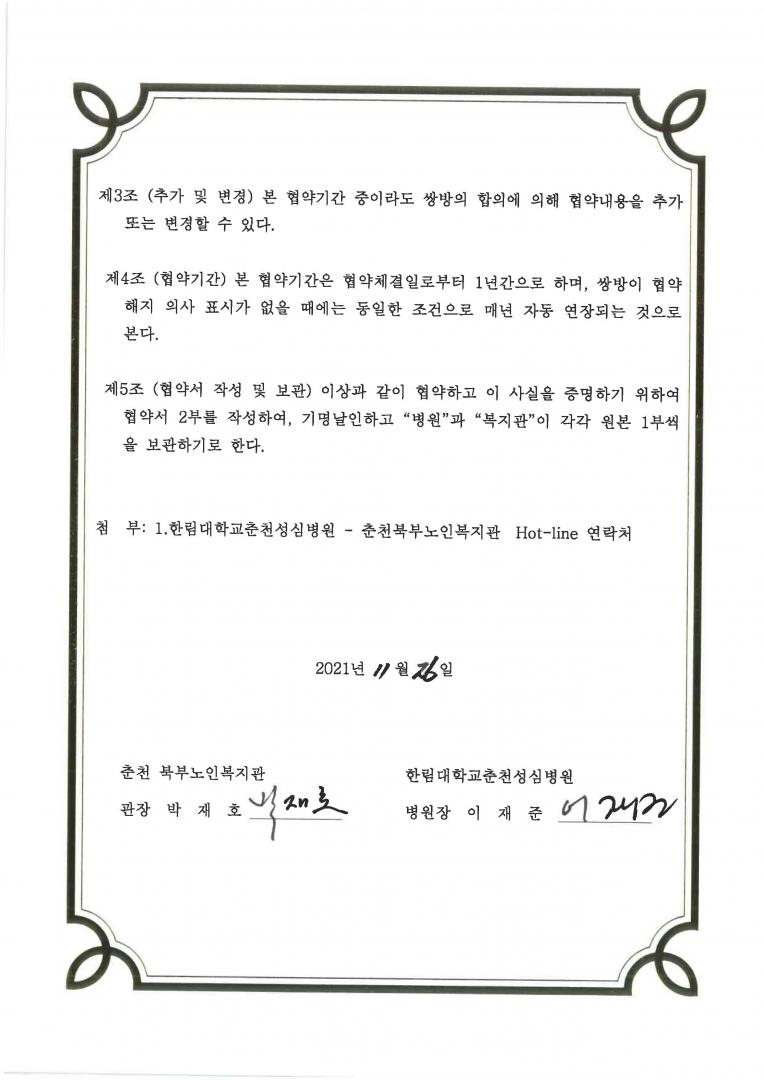 제3조 (추가 및 변경) 본 협약기간 중이라도 쌍방의 합의에 의해 협약내용을 추가
또는 변경할 수 있다.
제4조 (협약기간) 본 협약기간은 협약체결일로부터 1년간으로 하며, 쌍방이 협약
해지 의사 표시가 없을 때에는 동일한 조건으로 매년 자동 연장되는 것으로
본다.
제5조 (협약서 작성 및 보관) 이상과 같이 협약하고 이 사실을 증명하기 위하여
협약서 2부를 작성하여, 기명날인하고 “병원”과 “복지관”이 각각 원본 1부씩
을 보관하기로 한다.
첨 부: 1.한림대학교춘천성심병원 - 춘천북부노인복지관 Hot-line 연락처
2021년 11월 26일
춘천 북부노인복지관
관장 박 재 호 박재호
한림대학교춘천성심병원
병원장 이 재 준 이재준